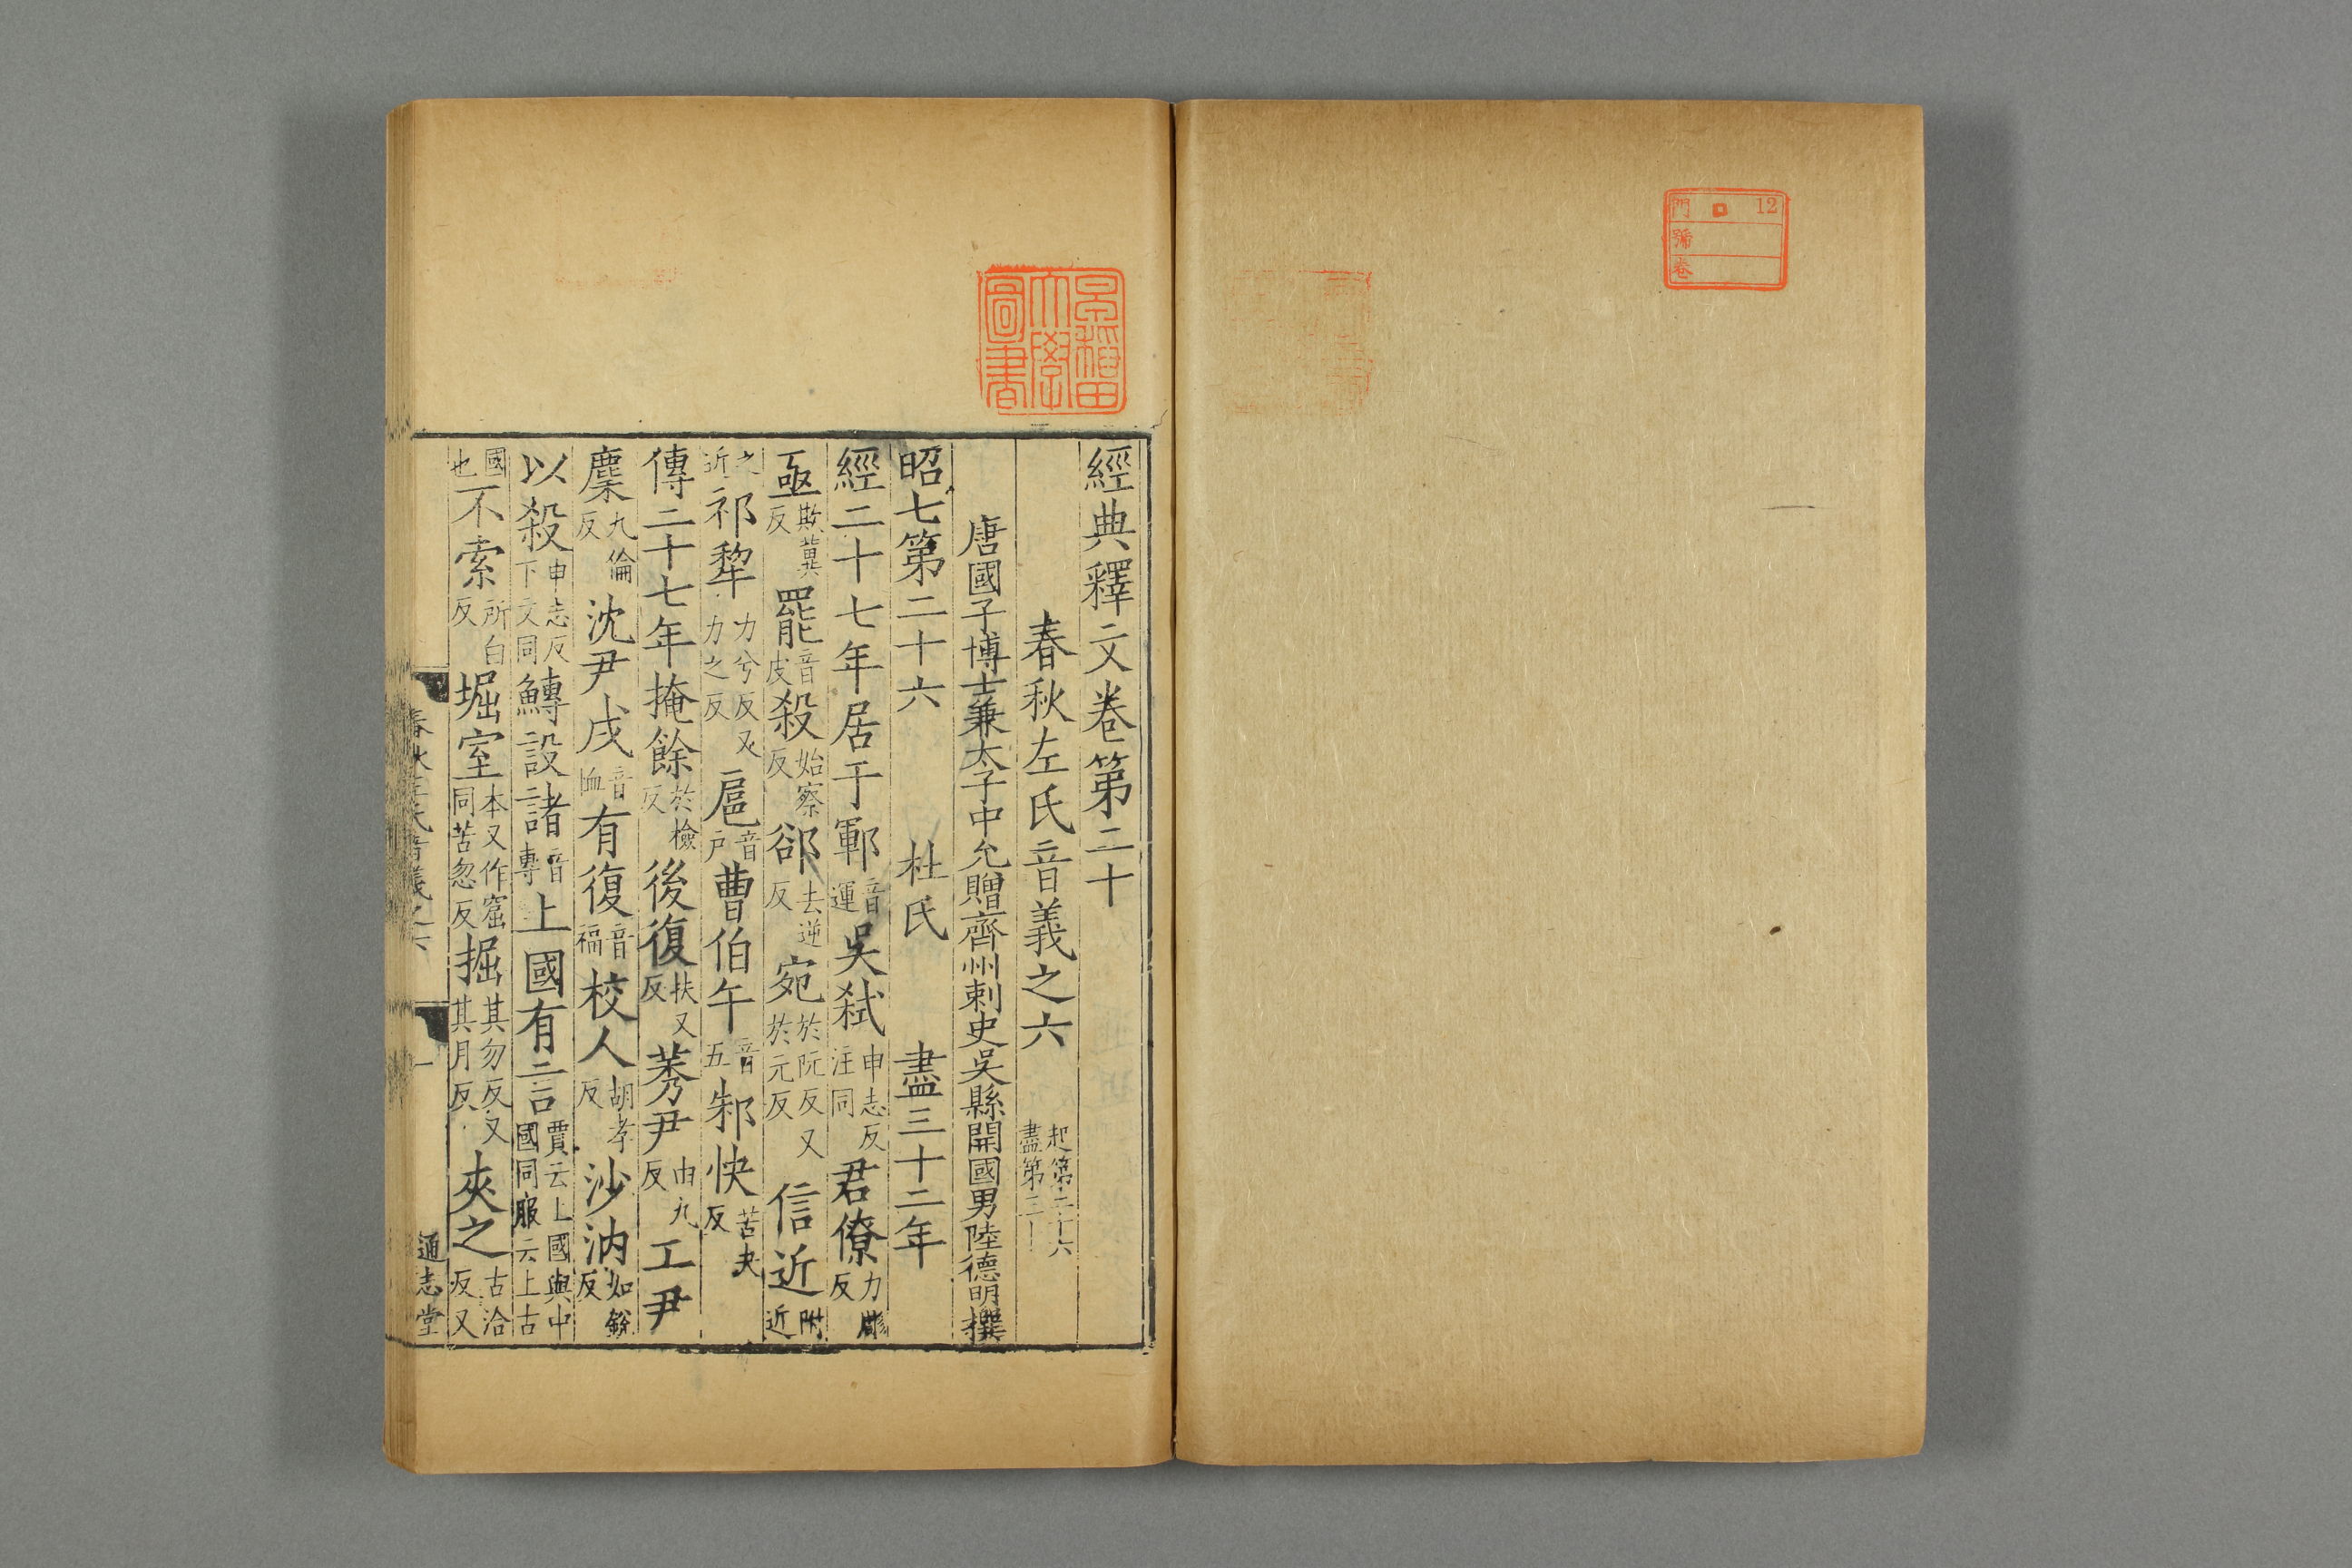 門 ロ 12
號
卷
早稲田大學圖書
經典釋文卷第二十
春秋左氏音義之六 起第二十六盡第三十
唐國子博士兼太子中允贈齊州刺史吳縣開國男陸德明撰
昭七第二十六 杜氏 盡三十二年
經二十七年居于鄆音運吳弑申志反注同君僚力彫反
亟欺冀反罷音皮殺始察反郤去逆反宛於阮反又於元反信近附近
之近祁犂力兮反又力之反扈音戶曹伯午音五邾快苦夬反
傳二十七年掩餘於檢反後復扶又反莠尹由九反工尹
麇九倫反沈尹戌音恤有復音福校人胡孝反沙汭如銳反
以殺申志反下文同鱄設諸音專上國有言賈云上國與中國同服云上古
國也不索所白反堀室本又作窟同苦忽反掘其勿反又其月反夾之古洽反又
春秋左氏音義之六 一 通志堂